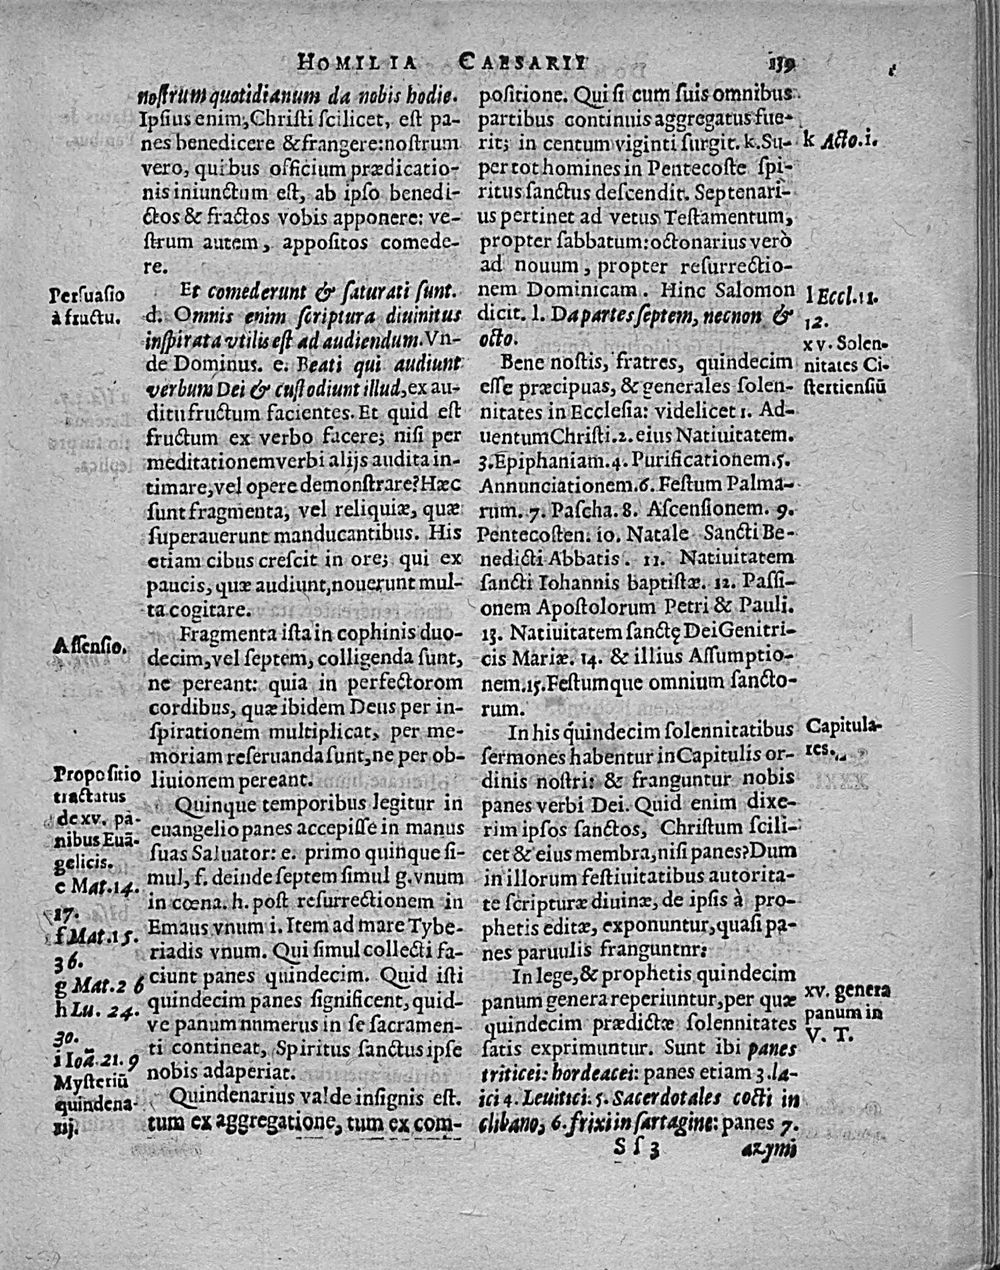 HOMILIA CAESARII 139
nostrum quotidianum da nobis hodie.
Ipsius enim, Christi scilicet, est pa-
nes benedicere & frangere: nostrum
vero, quibus officium prædicatio-
nis iniunctum est, ab ipso benedi-
ctos & fractos vobis apponere: ve-
strum autem, appositos comede-
re.
Persuasio
à fructu.
Et comederunt & saturati sunt.
d. Omnis enim scriptura diuinitus
inspirata vtilis est ad audiendum. Vn-
de Dominus. e. Beati qui audiunt
verbum Dei & custodiunt illud, ex au-
ditu fructum facientes. Et quid est
fructum ex verbo facere; nisi per
meditationem verbi alijs audita in-
timare, vel opere demonstrare? Hæc
sunt fragmenta, vel reliquiæ, quæ
superauerunt manducantibus. His
etiam cibus crescit in ore; qui ex
paucis, quæ audiunt, nouerunt mul-
ta cogitare.
Assensio.
Fragmenta ista in cophinis duo-
decim, vel septem, colligenda sunt,
ne pereant: quia in perfectorom
cordibus, quæ ibidem Deus per in-
spirationem multiplicat, per me-
moriam reseruanda sunt, ne per ob-
liuionem pereant.
Propositio
tractatus
de xv. pa-
nibus Euã-
gelicis.
e Mat. 14.
17.
f Mat. 15.
36.
g Mat. 26
h Lu. 24.
30.
i Ioã. 21. 9
Mysteriũ
quindena-
rij.
Quinque temporibus legitur in
euangelio panes accepisse in manus
suas Saluator: e. primo quinque si-
mul, f. deinde septem simul g. vnum
in cœna. h. post resurrectionem in
Emaus vnum i. Item ad mare Tybe-
riadis vnum. Qui simul collecti fa-
ciunt panes quindecim. Quid isti
quindecim panes significent, quid-
ve panum numerus in se sacramen-
ti contineat, Spiritus sanctus ipse
nobis adaperiat.
Quindenarius valde insignis est.
tum ex aggregatione, tum ex com-
positione. Qui si cum suis omnibus
partibus continuis aggregatus fue-
rit; in centum viginti surgit. k. Su-
per tot homines in Pentecoste spi-
ritus sanctus descendit. Septenari-
us pertinet ad vetus Testamentum,
propter sabbatum: octonarius verò
ad nouum, propter resurrectio-
nem Dominicam. Hinc Salomon
dicit. l. Da partes septem, necnon &
octo.
k Acto. i.
l Eccl. 11.
12.
xv. Solen-
nitates Ci-
stertiensiũ
Bene nostis, fratres, quindecim
esse præcipuas, & generales solen-
nitates in Ecclesia: videlicet 1. Ad-
uentum Christi. 2. eius Natiuitatem.
3. Epiphaniam. 4. Purificationem. 5.
Annunciationem. 6. Festum Palma-
rum. 7. Pascha. 8. Ascensionem. 9.
Pentecosten. 10. Natale Sancti Be-
nedicti Abbatis. 11. Natiuitatem
sancti Iohannis baptistæ. 12. Passi-
onem Apostolorum Petri & Pauli.
13. Natiuitatem sanctę Dei Genitri-
cis Mariæ. 14. & illius Assumptio-
nem. 15. Festumque omnium sancto-
rum.
Capitula-
res.
In his quindecim solennitatibus
sermones habentur in Capitulis or-
dinis nostri: & franguntur nobis
panes verbi Dei. Quid enim dixe-
rim ipsos sanctos, Christum scili-
cet & eius membra, nisi panes? Dum
in illorum festiuitatibus autorita-
te scripturæ diuinæ, de ipsis à pro-
phetis editæ, exponuntur, quasi pa-
nes paruulis franguntnr:
xv. genera
panum in
V. T.
In lege, & prophetis quindecim
panum genera reperiuntur, per quæ
quindecim prædictæ solennitates
satis exprimuntur. Sunt ibi panes
triticei: hordeacei: panes etiam 3. la-
ici 4. Leuitici: 5. Sacerdotales cocti in
clibano, 6. frixi in sartagine: panes 7.
S s 3 azymi